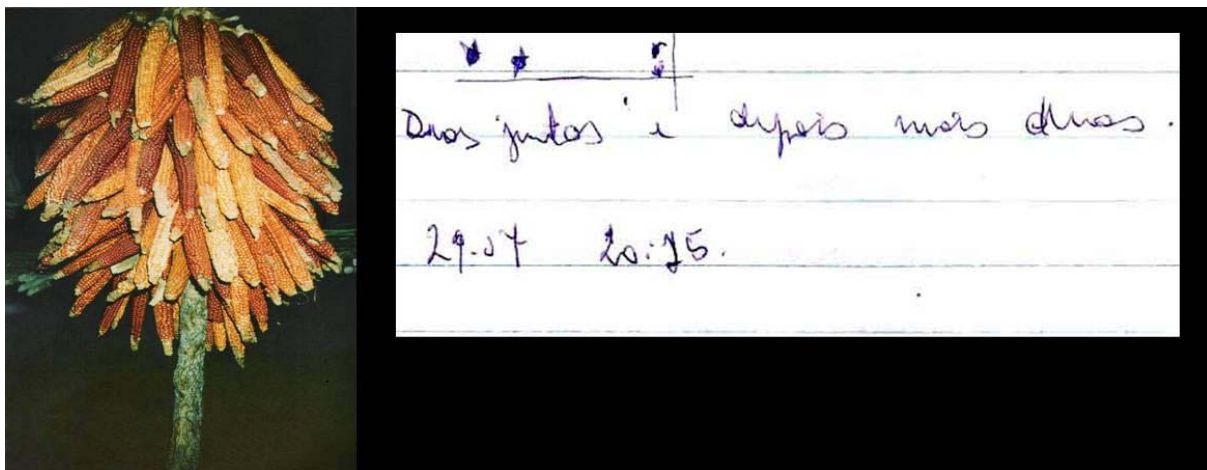 Duas juntas e depois mais duas.
29.07 20:15.